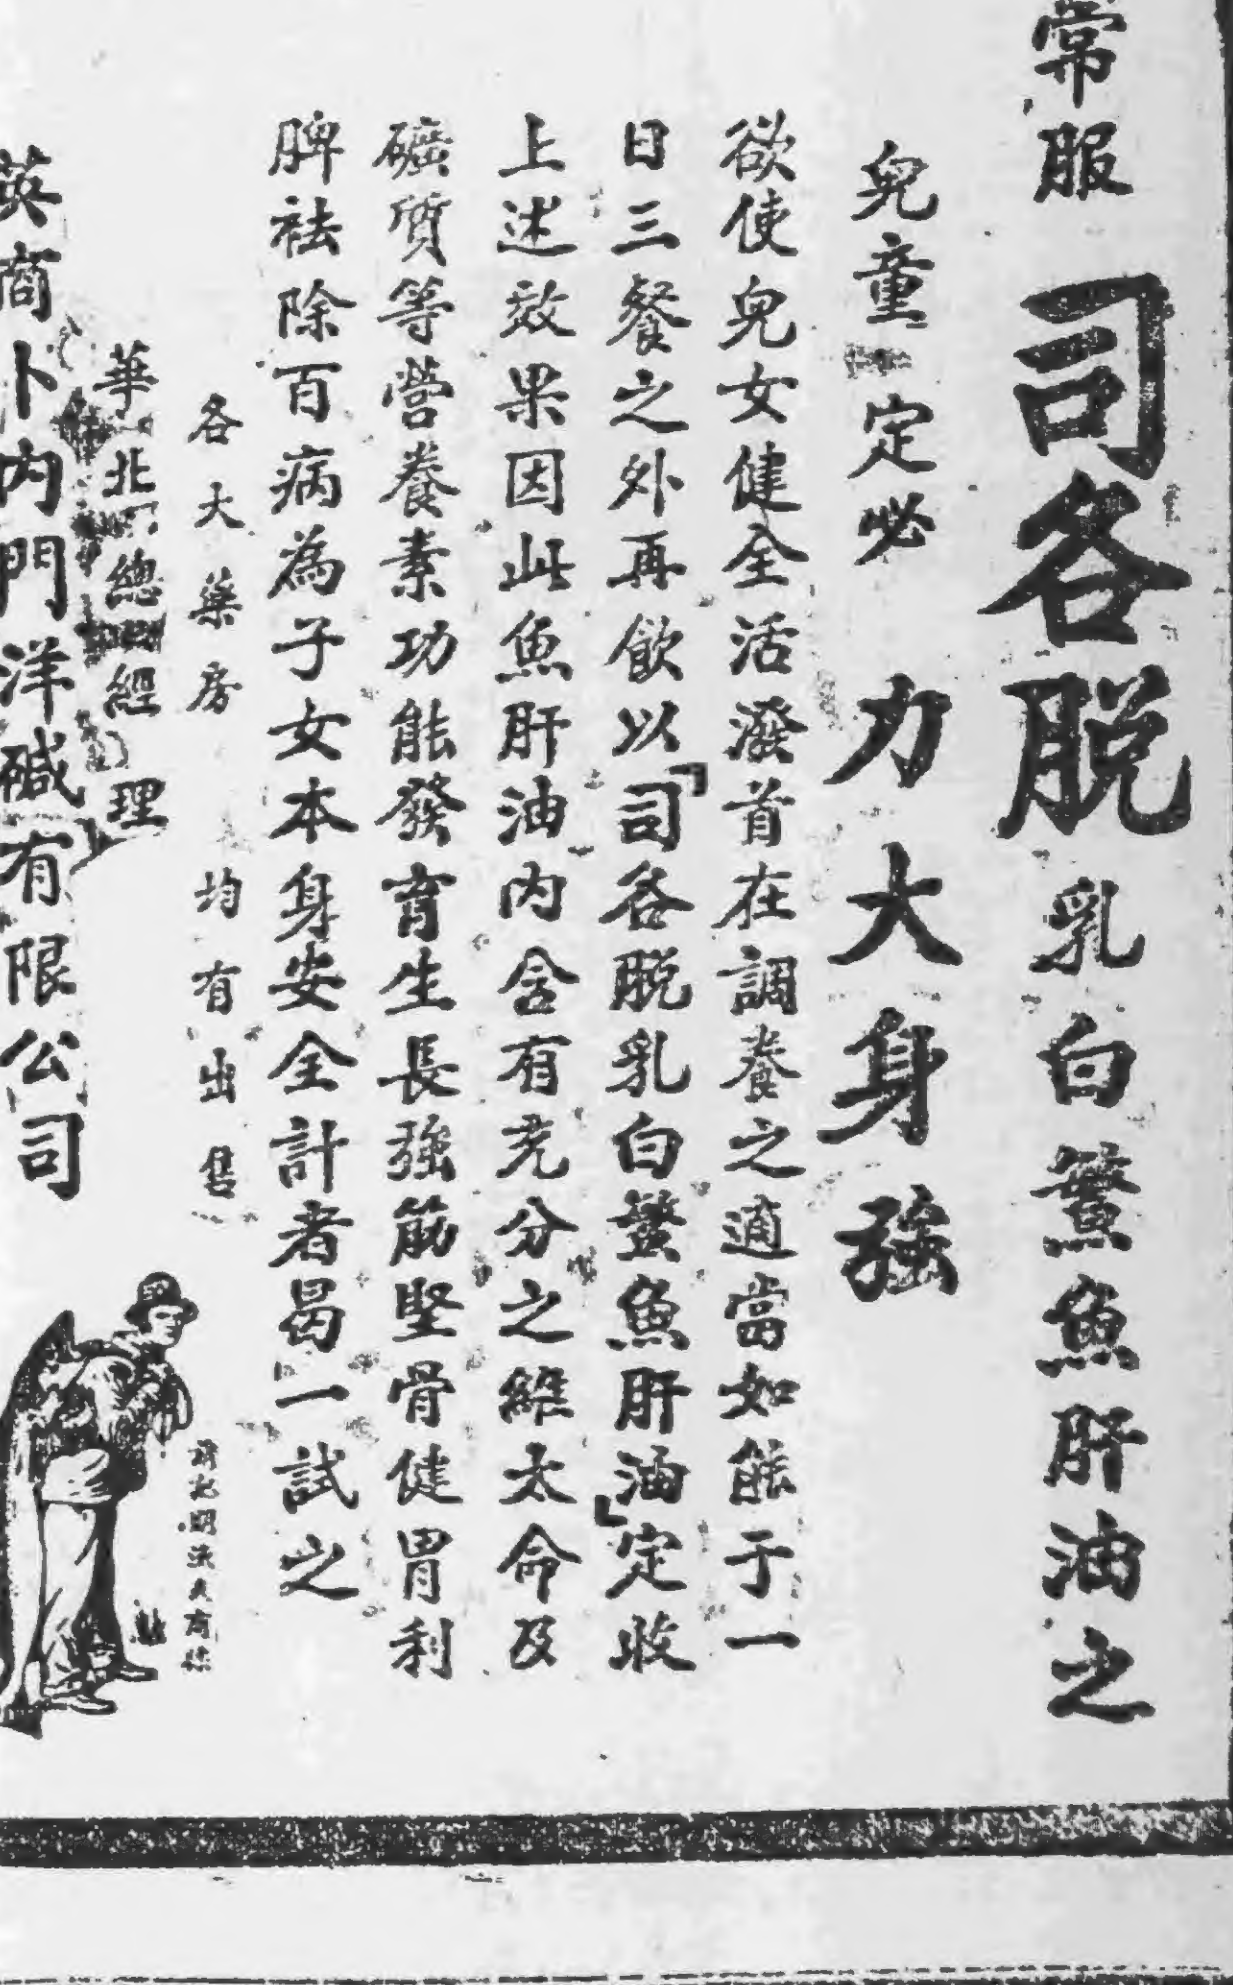 常服司各脫乳白鰵魚肝油之
兒童定必力大身強
欲使兒女健全活潑首在調養之適當如能于一
日三餐之外再飲以「司各脫乳白鰵魚肝油」定收
上述效果因此魚肝油內含有充分之維太命及
礦質等營養素功能發育生長強筋堅骨健胃利
脾祛除百病為子女本身安全計者曷一試之
各大藥房均有出售
華北總經理
英商卜內門洋碱有限公司